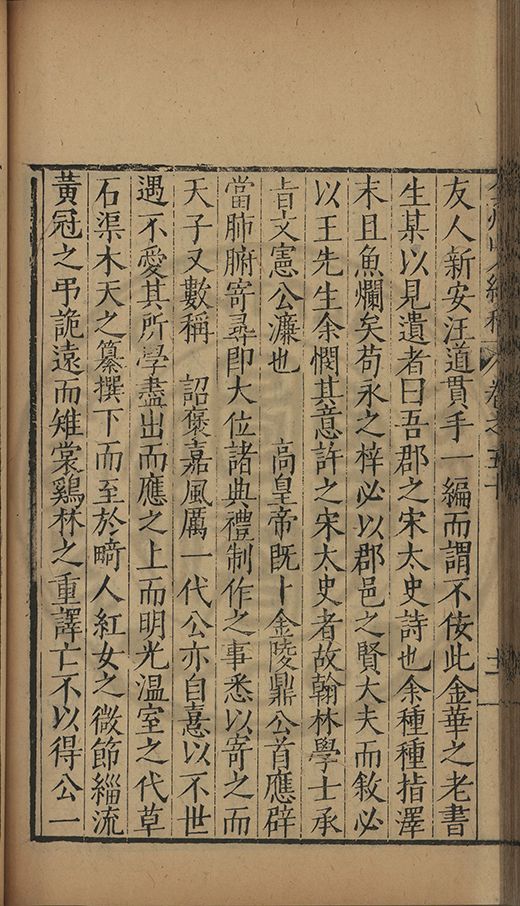 卷之五十
友人新安汪道貫手一編而謂不佞此金華之老書
生某以見遺者曰吾郡之宋太史詩也余種種指澤
末且魚爛矣苟永之梓必以郡邑之賢大夫而敘必
以王先生余憫其意許之宋太史者故翰林學士承
旨文憲公濂也 高皇帝既卜金陵鼎公首應辟
當肺腑寄尋即大位諸典禮制作之事悉以寄之而
天子又數稱 詔褒嘉風厲一代公亦自憙以不世
遇不愛其所學盡出而應之上而明光溫室之代草
石渠木天之纂撰下而至於畸人紅女之微節緇流
黃冠之弔詭遠而雉裳鷄林之重譯亡不以得公一